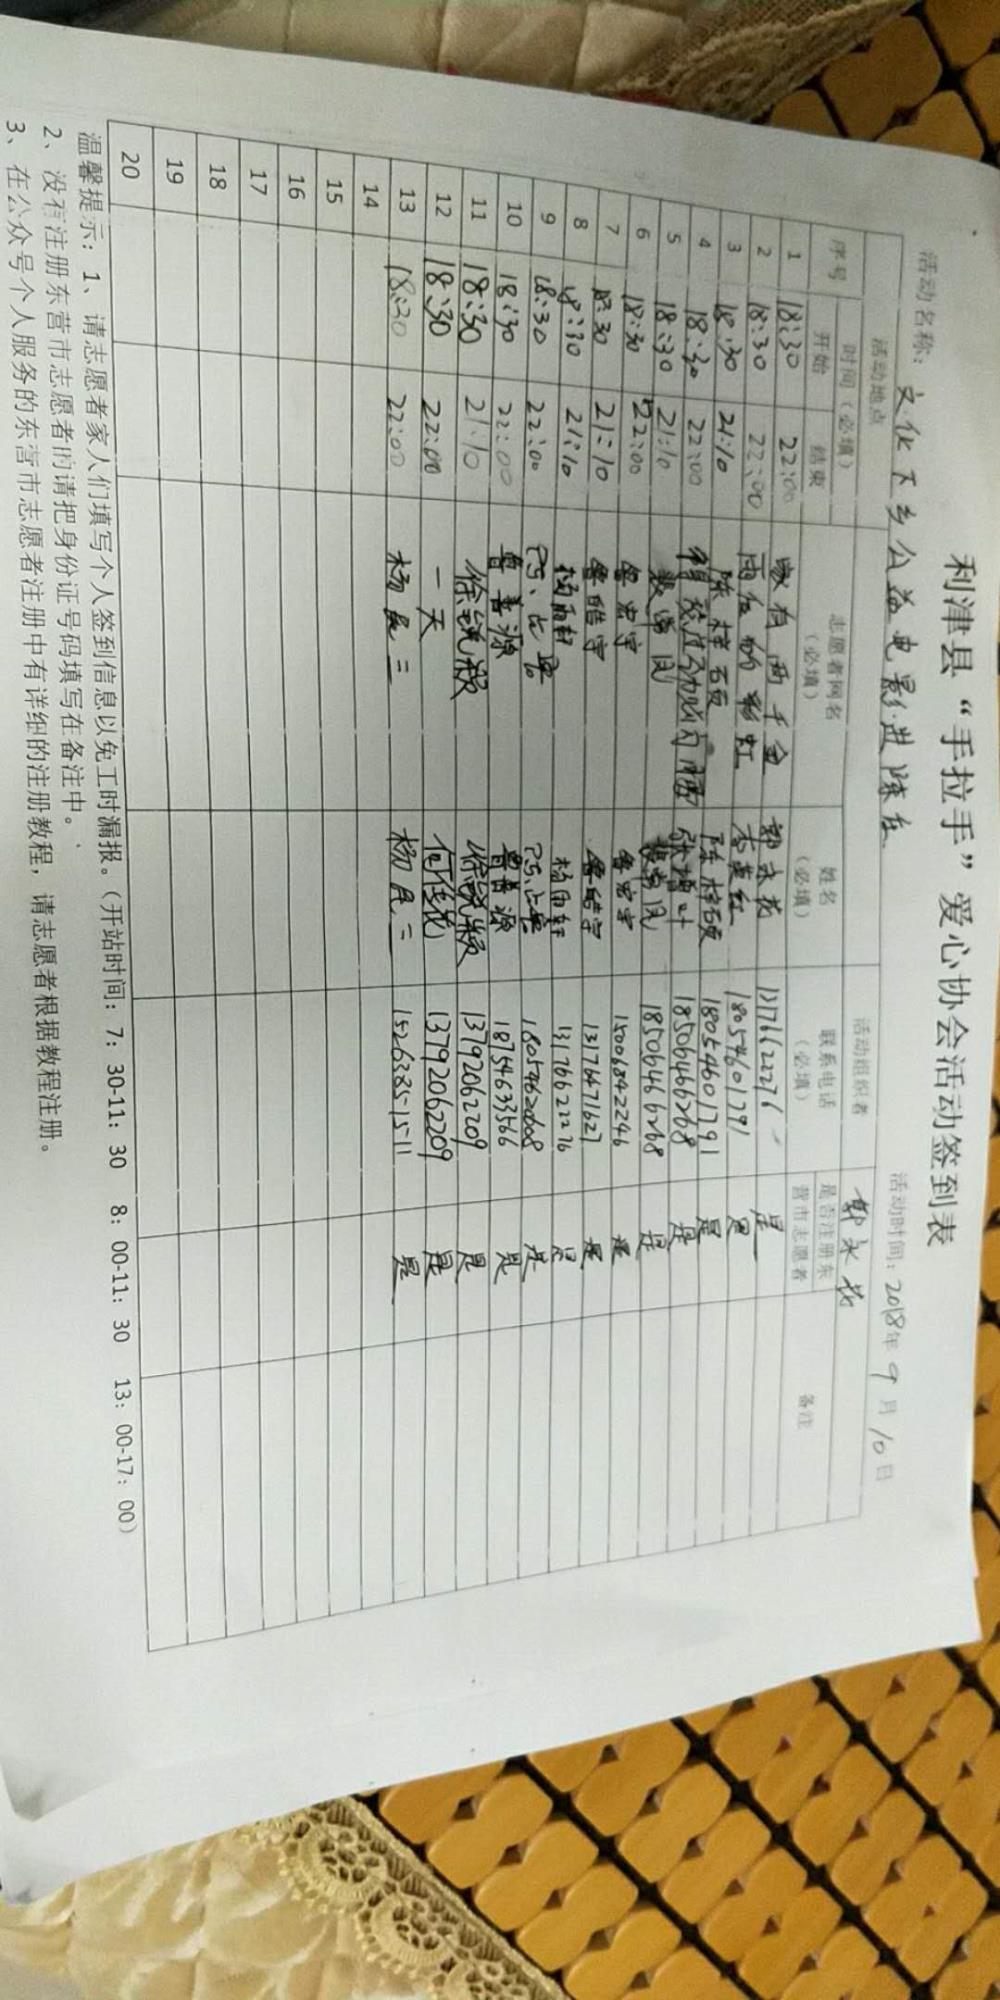 利津县“手拉手”爱心协会活动签到表
活动名称：文化下乡公益电影进陈庄 活动时间：2018年9月10日
活动地点 活动组织者 郭永花
序号 时间（必填） 志愿者网名（必填） 姓名（必填） 联系电话（必填） 是否注册东营市志愿者 备注
开始 结束
1 18:30 22:00 千金 郭永花 13176622276 是
2 18:30 22:00 雨后的彩虹 李英红 18054601791 是
3 18:30 21:10 陈梓硕 陈梓硕 18054601791 是
4 18:30 22:00 张增叶 18506466268 是
5 18:30 21:10 18506466268 是
6 18:30 22:00 鲁宏宇 鲁宏宇 15006842246 是
7 18:30 21:10 鲁皓宇 鲁皓宇 13176471627 是
8 18:30 21:10 杨雨轩 杨雨轩 13176622276 是
9 18:30 22:00 18054620608 是
10 18:30 22:00 18754633566 是
11 18:30 21:10 徐锐颖 徐锐颖 13792062209 是
12 18:30 22:00 一天 13792062209 是
13 18:30 22:00 杨民三 杨民三 15263851511 是
14
15
16
17
18
19
20
温馨提示：1、请志愿者家人们填写个人签到信息以免工时漏报。（开站时间：7：30-11：30 8：00-11：30 13：00-17：00）
2、没有注册东营市志愿者的请把身份证号码填写在备注中。
3、在公众号个人服务的东营市志愿者注册中有详细的注册教程，请志愿者根据教程注册。